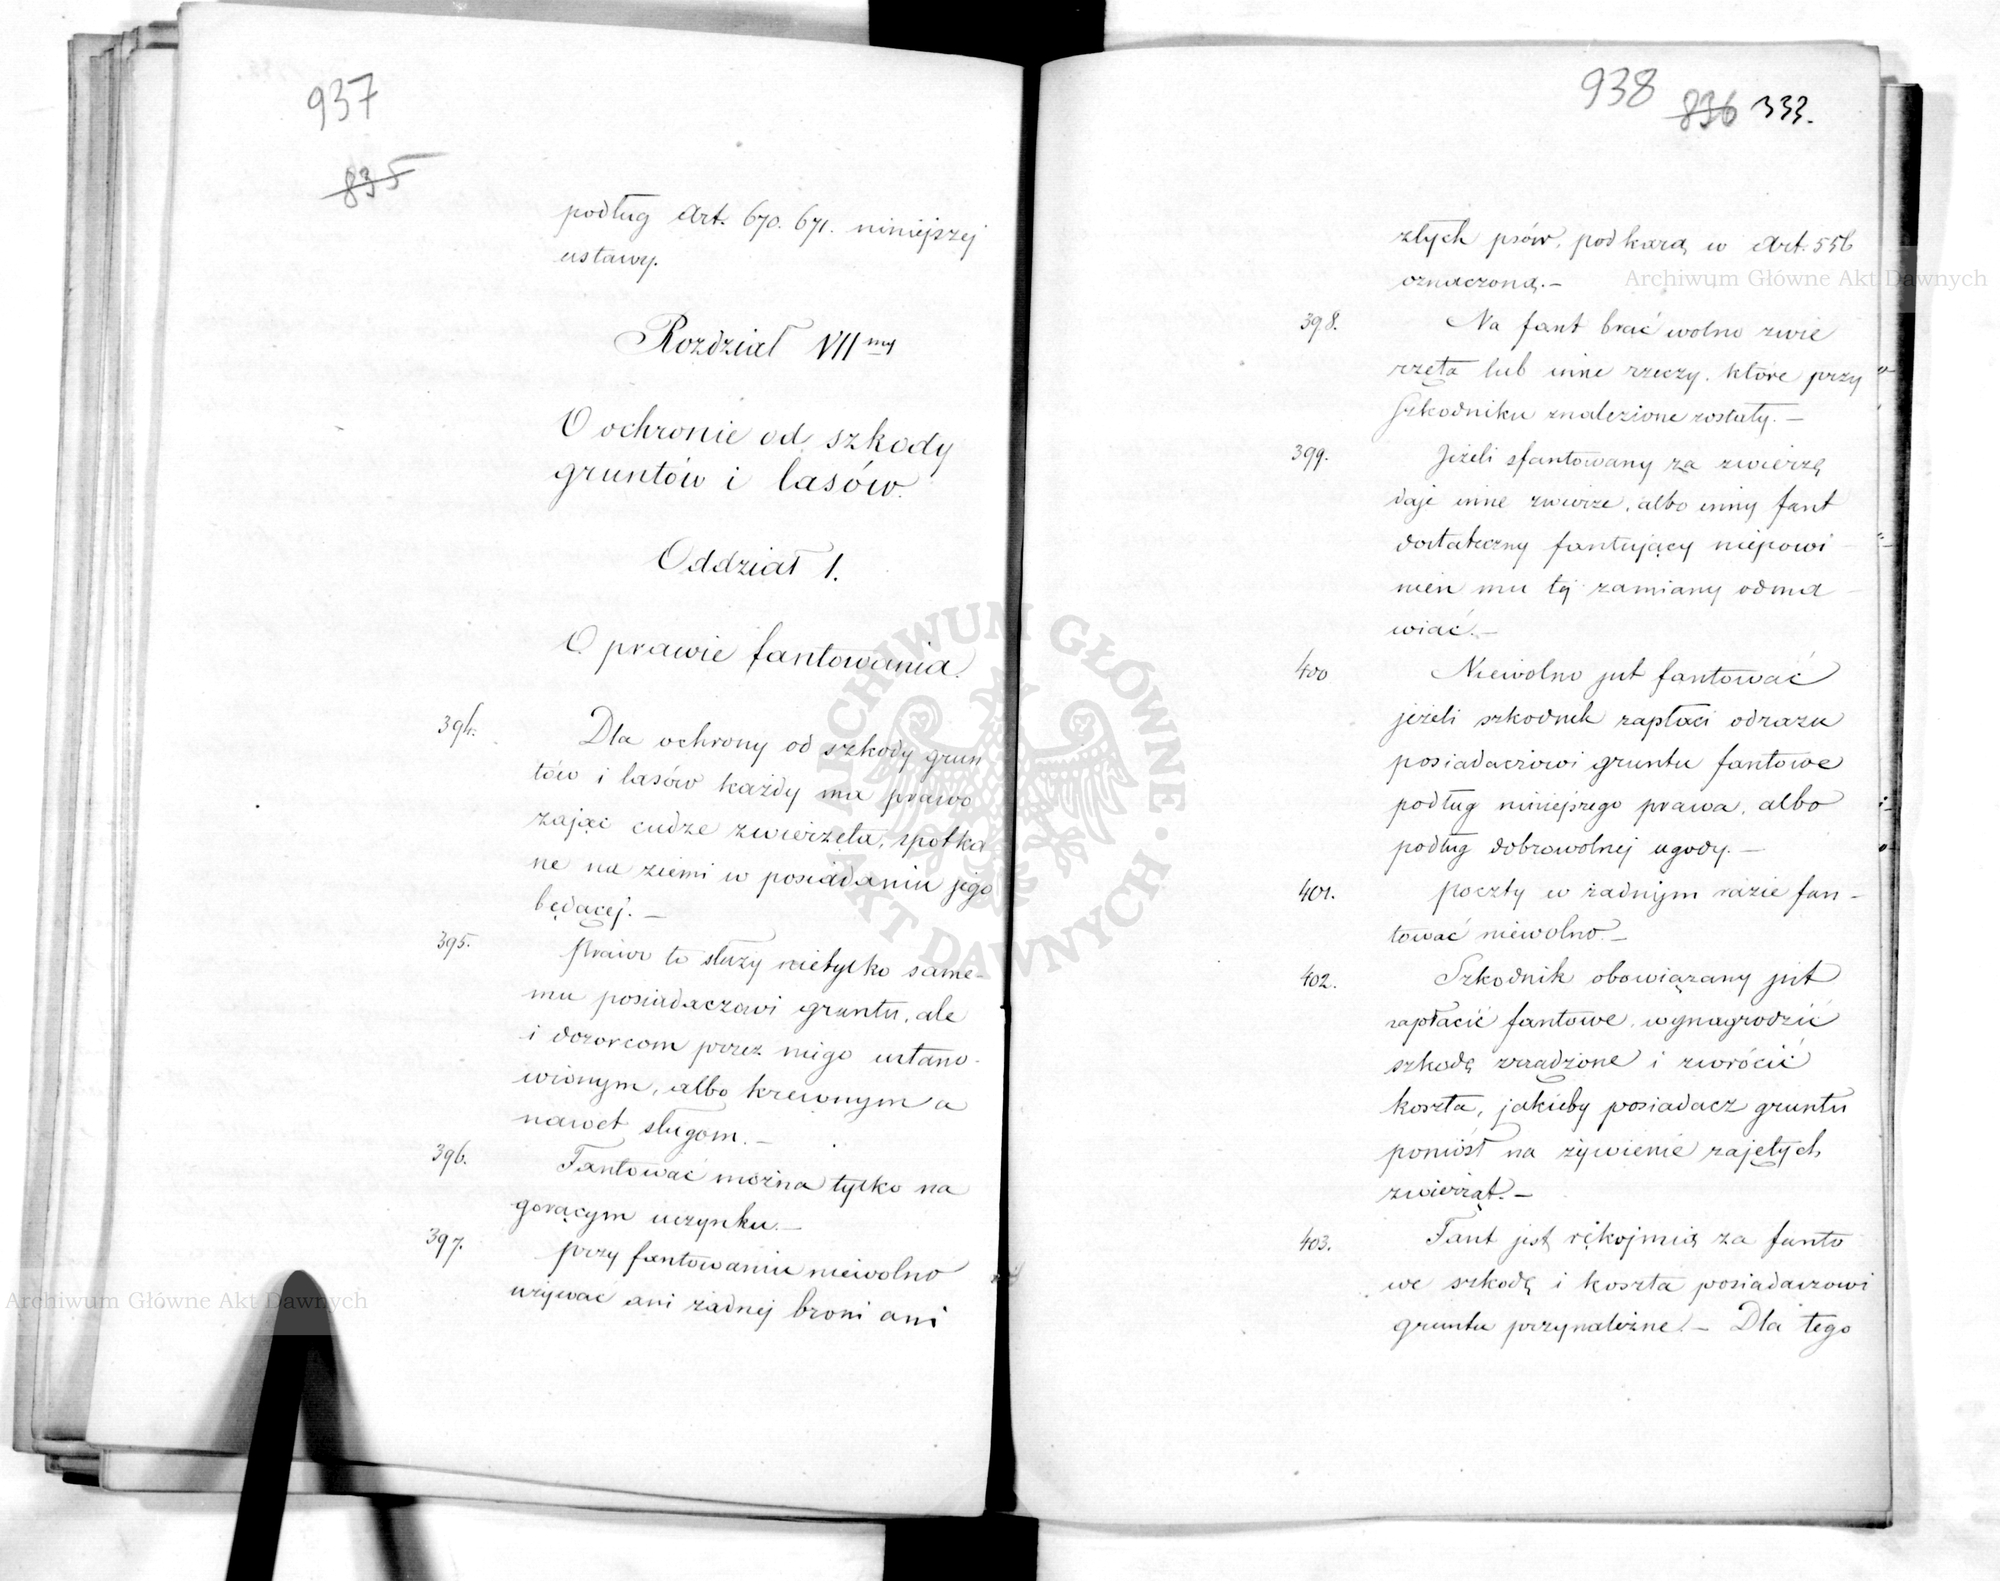 937
835
podług Art. 670. 671. niniejszej
ustawy.
Rozdział VII my
O ochronie od szkody
gruntów i lasów.
Oddział 1.
O prawie fantowania.
394. Dla ochrony od szkody grun
tów i lasów każdy ma prawo
zająć cudze zwierzęta, spotka
ne na ziemi w posiadaniu jego
będącej. —
395. Prawo to służy nietylko same-
mu posiadaczowi gruntu, ale
i dozorcom przez niego ustano-
wionym, albo krewnym a
nawet sługom. —
396. Fantować można tylko na
gorącym uczynku. —
397. Przy fantowaniu niewolno
używać ani żadnej broni ani
938 836 333.
złych psów, pod karą w Art. 556
oznaczoną. —
398. Na fant brać wolno zwie
rzęta lub inne rzeczy, które przy
Szkodniku znalezione zostały. —
399. Jeżeli sfantowany za zwierzę
daje inne zwierze, albo inny fant
dostateczny fantujący niepowi
nien mu tej zamiany odma
wiać. —
400 Niewolno jut fantować
jeżeli szkodnik zapłaci odrazu
posiadaczowi gruntu fantowe
podług niniejszego prawa, albo
podług dobrowolnej ugody. —
401. Poczty w żadnym razie fan-
tować niewolno. —
402. Szkodnik obowiązany jut
zapłacić fantowe, wynagrodzić
szkodę zrządzone i zwrócić
koszta, jakieby posiadacz gruntu
poniósł na żywienie zajętych
zwierząt. —
403. Fant jest rękojmią za fanto
we szkodę i koszta posiadaczowi
gruntu przynależne. — Dla tego
Archiwum Główne Akt Dawnych
Archiwum Główne Akt Dawnych
ARCHIWUM GŁÓWNE AKT DAWNYCH